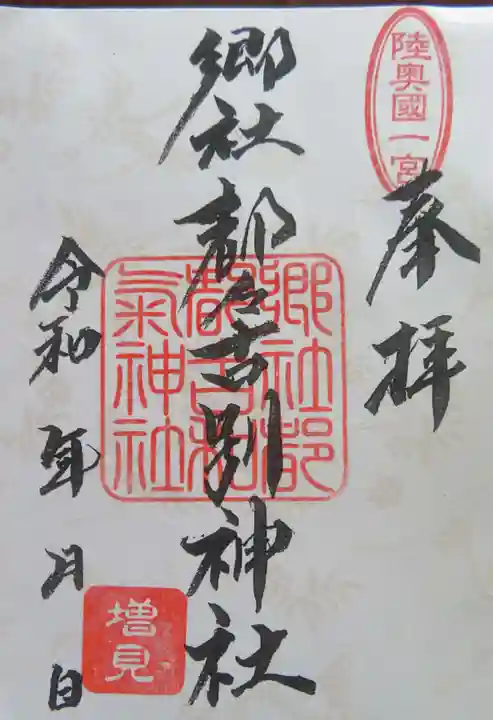 陸奥國一宮
奉拝
郷社 都々古別神社
郷社都
都古和
氣神社
令和 年 月 日
増見